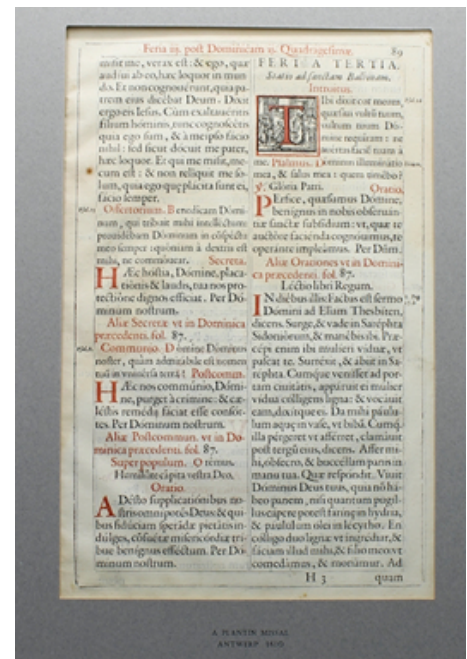 Feria iij. post Dominicam ij. Quadragesimæ. 89
misit me, verax est: & ego, quæ
audiui ab eo, hæc loquor in mun
do. Et non cognouerunt, quia pa-
trem eius dicebat Deum. Dixit
ergo eis Iesus. Cùm exaltaueritis
filium hominis, tunc cognoscetis
quia ego sum, & à meipso facio
nihil: sed sicut docuit me pater,
hæc loquor. Et qui me misit, me-
cum est: & non reliquit me so-
lum, quia ego quæ placita sunt ei,
facio semper.
Offertorium. Benedicam Dómi-
num, qui tríbuit mihi intellectum:
prouidébam Dóminum in conspéctu
meo semper: quóniam à dextris est
mihi, ne commouear. Secreta.
HÆc hóstia, Dómine, placa-
tiónis & laudis, tua nos pro-
tectióne dignos efficiat. Per Dó-
minum nostrum.
Aliæ Secretæ vt in Dominica
præcedenti. fol. 87.
Communio. Dómine Dóminus
noster, quàm admirábile est nomen
tuũ in vniuersa terra! Postcomm.
HÆc nos commúnio, Dómi-
ne, purget à crimine: & cæ-
léstis remédij fáciat esse consór-
tes. Per Dóminum nostrum.
Aliæ Postcommun. vt in Do-
minica præcedenti. fol. 87.
Super populum. Orémus.
Humiliáte cápita vestra Deo.
Oratio.
ADésto supplicatiónibus no-
stris omnípotẽs Deus: & qui-
bus fidúciam sperãdæ pietátis in-
dúlges, cõsuétæ misericórdiæ trí-
bue benígnus efféctum. Per Dó-
minum nostrum.
FERIA TERTIA.
Statio ad sanctam Balbinam.
Introitus.
TIbi dixit cor meum,
quæsíui vultũ tuum,
vultum tuum Dó-
mine requiram: ne
auértas faciẽ tuam à
me. Psalmus. Dóminus illuminátio
mea, & salus mea: quem timébo?
℣. Glória Patri. Oratio.
PErfice, quæsumus Dómine,
benígnus in nobis obseruán-
tiæ sanctæ subsídium: vt, quæ te
auctóre faciénda cognóuimus, te
operánte impleámus. Per Dñm.
Aliæ Orationes vt in Domini-
ca præcedenti. fol. 87.
Léctio libri Regum.
IN diébus illis: Factus est sermo
Dómini ad Elíam Thesbíten,
dicens. Surge, & vade in Saréphta
Sidoniórum, & manébis ibi. Præ-
cépi enim ibi mulíeri víduæ, vt
pascat te. Surréxit, & ábijt in Sa-
réphta. Cumque venísset ad por-
tam ciuitátis, appáruit ei múlier
vídua cólligens ligna: & vocáuit
eam, dixitque ei. Da mihi páulu-
lum aquæ in vase, vt bibã. Cumq́;
illa pérgeret vt afférret, clamáuit
post tergũ eius, dicens. Affer mi-
hi, óbsecro, & buccéllam panis in
manu tua. Quæ respóndit. Viuit
Dóminus Deus tuus, quia nõ há-
beo panem, nisi quantum pugíl-
lus cápere potest farínæ in hýdria,
& páululum ólei in lécytho. En
cólligo duo ligna: vt ingrédiar, &
fáciam illud mihi, & fílio meo: vt
comedámus, & moriámur. Ad
H 3 quam
A PLANTIN MISSAL
ANTWERP